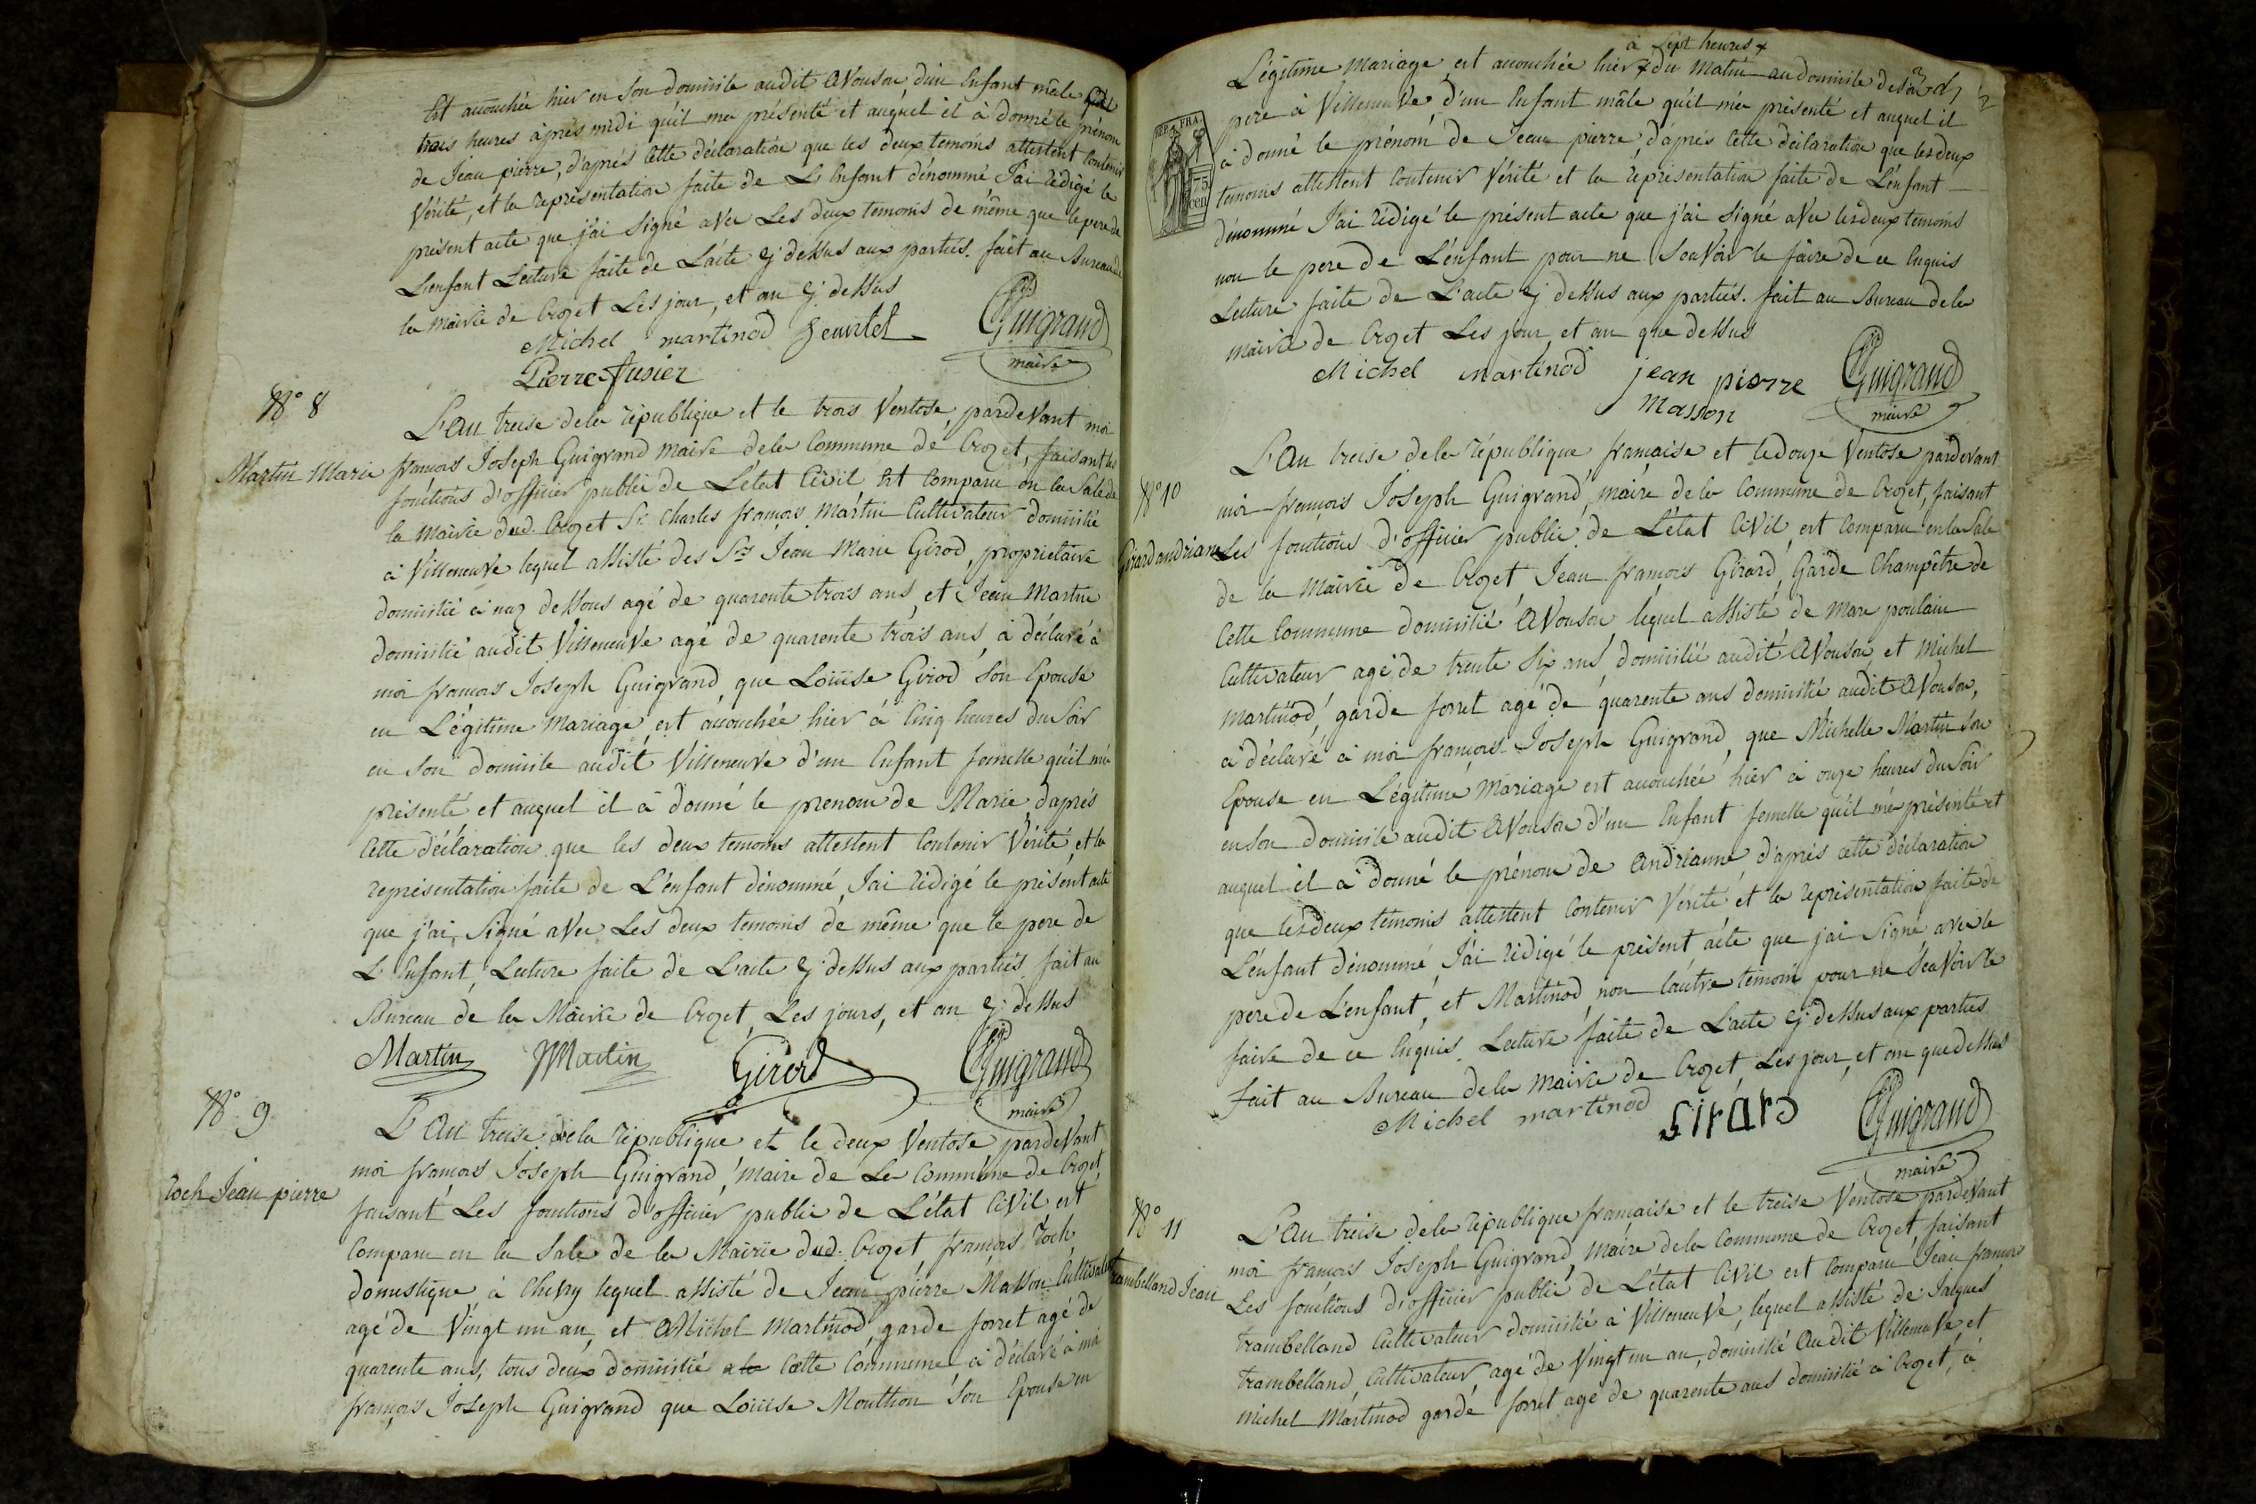 Est accouchée hier en son domicile audit avouson, d'un Enfant mâle
trois heures après midi qu'il ma présenté et auquel il à donné le prénom
de Jean pierre, d'après Cette déclaration que les deux temoins attestent Contenir
Vérité, et la représentation faite de L'Enfant dénommé J'ai rédigé le
présent acte que j'ai signé avec Les deux temoins de même que le pere de
L'enfant Lecture faite de L'acte cy dessus aux parties. fait au Bureau de
la mairie de Crozet Les jour, et an cy dessus
Michel martinod Guigrand
maire
Pierre fusier
N.° 8
L'An treise de la république et le trois Ventose pardevant moi
Martin Marie
francois Joseph Guigrand maire de la Commune de Crozet, faisant les
fonctions d'officier public de L'état Civil Est Comparu en la Sale de
la Mairie dud. Crozet Sr. Charles françois Martin Cultivateur domicilié
à Villeneuve lequel assisté des Srs Jean Marie Girod, proprietaire
domicilié à naz dessous agé de quarente trois ans, et Jean Martin
domicilié audit Villeneuve agé de quarente trois ans, à déclaré à
moi francois Joseph Guigrand, que Loüise Girod Son Epouse
en Légitime Mariage est accouchée hier à Cinq heures du Soir
en Son domicile audit Villeneuve d'un Enfant femelle qu'il m'a
présenté et auquel il à donné le prenom de Marie, d'après
Cette déclaration que les deux temoins attestent Contenir Vérité, et la
représentation faite de L'enfant dénommé, J'ai rédigé le présent acte
que j'ai, Signé avec Les deux temoins de même que le pere de
L'Enfant, Lecture faite de L'acte cy dessus aux parties fait au
Bureau de la Mairie de Crozet, Les jours, et an cy dessus
Martin JMartin Girod Guigrand
maire
N.° 9
L'An treise de la république et le deux Ventose pardevant
moi francois Joseph Guigrand, maire de la Commune de Crozet,
roch Jean pierre
faisant Les fonctions d'officier public de L'état Civil est
Comparu en la Sale de la Mairie dud. Crozet françois roch
domestique à Chevry lequel assisté de Jean pierre Masson Cultivateur
agé de Vingt un an, et Michel Martinod, garde forret agé de
quarente ans, tous deux domicilié Cette Commune à déclaré à moi
françois Joseph Guigrand que Loüise Mouthon Son Epouse en
à Sept heures
Légitime Mariage est accouchée hier du Matin au domicile de Son
pere à Villeneuve d'un Enfant mâle qu'il m'a présenté et auquel il
REP. FRA.
75
cen
à donné le prénom de Jean pierre, d'après Cette déclaration que les deux
temoins attestent Contenir Vérité et la représentation faite de L'enfant
dénommé J'ai rédigé le présent acte que j'ai signé avec les deux temoins
non le pere de L'enfant pour ne Scavoir le faire de ce Enquis
Lecture faite de L'acte cy dessus aux parties. fait au Bureau de la
mairie de Crozet Les jour, et an que dessus
Michel martinod jean pierre Guigrand
masson maire
L'An treise de la république française et le douze Ventose pardevant
N.° 10
moi françois Joseph Guigrand, maire de la Commune de Crozet, faisant
Girard andrianne
Les fonctions d'officier public de L'état Civil, est Comparu en la Sale
de la Mairie de Crozet, Jean françois Girard, Garde Champêtre de
Cette Commune domicilié avouson lequel assisté de Marc poulain
Cultivateur agé de trente Six ans domicilié audit avouson, et michel
Martinod, garde forret agé de quarente ans domicilié audit avouson,
à déclaré à moi françois Joseph Guigrand, que Michelle Martin Son
Epouse en Légitime Mariage est accouchée hier à onze heures du Soir
en Son domicile audit avouson d'un Enfant femelle qu'il m'a présenté et
auquel il à donné le prénom de andrianne d'après cette déclaration
que les deux temoins attestent Contenir Vérité et la représentation faite de
L'enfant dénommé, J'ai rédigé le présent acte que j'ai Signé avec le
pere de L'enfant, et Martinod, non L'autre temoin pour ne Scavoir le
faire de ce Enquis. Lecture faite de L'acte cy dessus aux parties
fait au Bureau de la mairie de Crozet Les jour, et an que dessus
Michel martinod Girard Guigrand
maire
N.° 11
L'An treise de la république française et le treise Ventose pardevant
moi françois Joseph Guigrand, maire de la Commune de Crozet, faisant
trambelland Jean
Les fonctions d'officier public de L'état Civil est Comparu Jean francois
trambelland Cultivateur domicilié à Villeneuve, lequel assisté de Jaques
trambelland, Cultivateur agé de Vingt un an, domicilié audit Villeneuve et
michel Martinod garde forret agé de quarente ans domicilié à Crozet, à